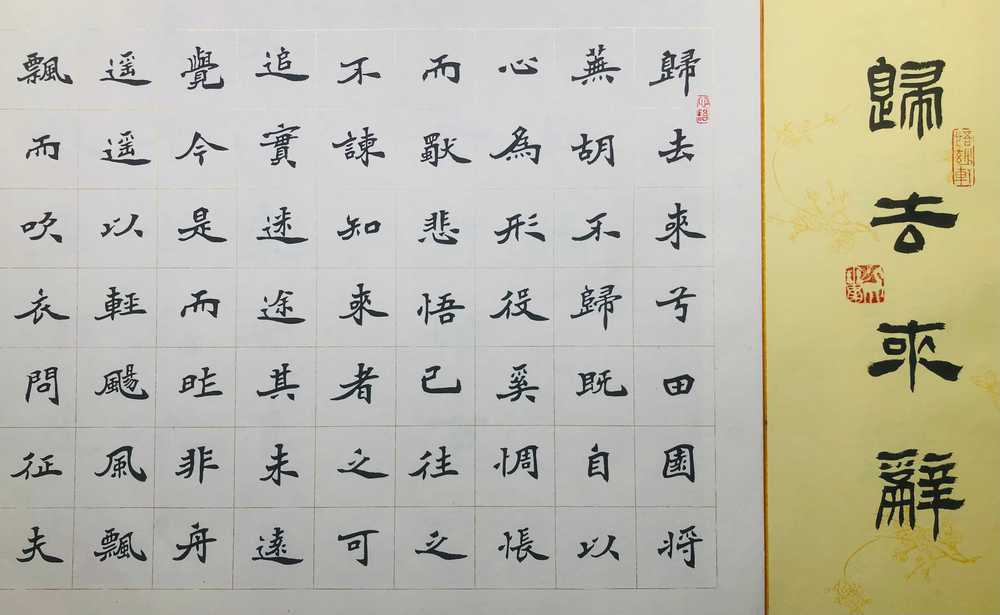 歸去來辭
歸去來兮田園將
蕪胡不歸既自以
心為形役奚惆悵
而獨悲悟已往之
不諫知來者之可
追實迷途其未遠
覺今是而昨非舟
遥遥以輕颺風飄
飄而吹衣問征夫